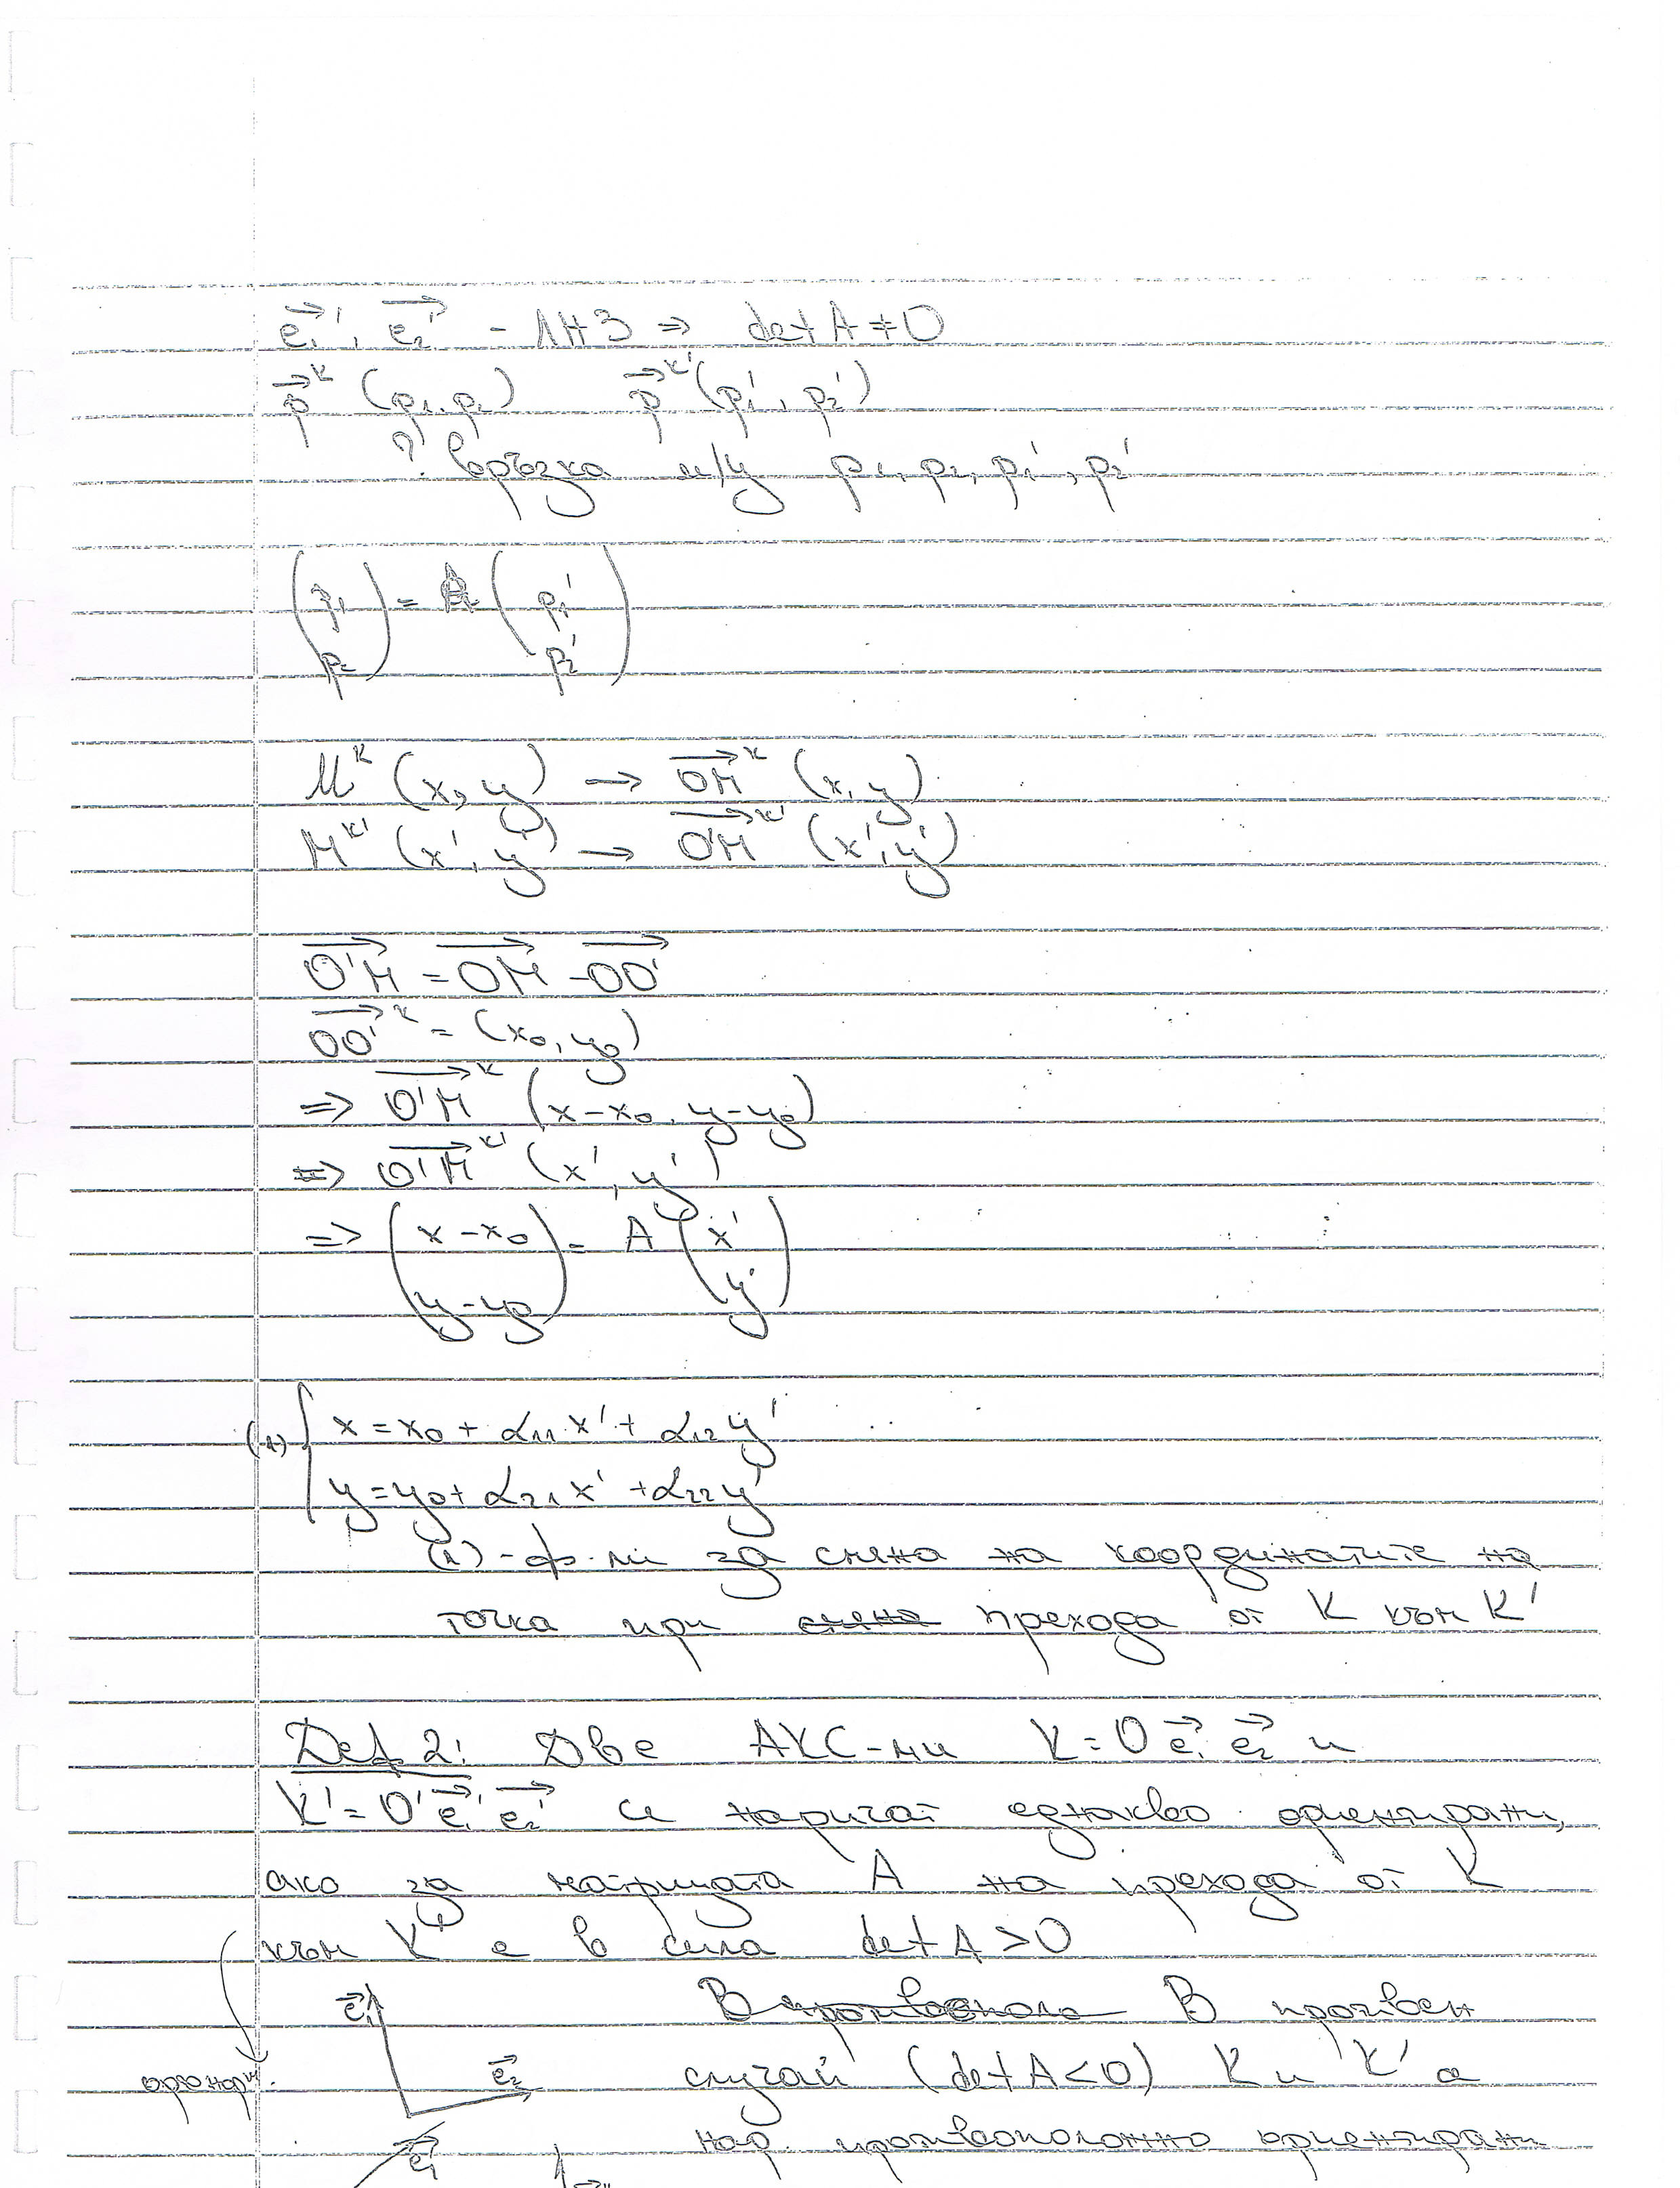 e⃗₁', e⃗₂' - ЛНЗ ⇒ det A ≠ 0
p⃗ᴷ (p₁, p₂) p⃗ᴷ' (p₁', p₂')
? Връзка м/у p₁, p₂, p₁', p₂'
(p₁ = A (p₁'
p₂) p₂')
Mᴷ (x, y) → OM⃗ᴷ (x, y)
Mᴷ' (x', y') → O'M⃗ᴷ' (x', y')
O'M⃗ = OM⃗ - OO'⃗
OO'⃗ᴷ = (x₀, y₀)
⇒ O'M⃗ᴷ (x-x₀, y-y₀)
⇒ O'M⃗ᴷ' (x', y')
⇒ (x-x₀ = A (x'
y-y₀) y')
(1) { x = x₀ + α₁₁x' + α₁₂y'
y = y₀ + α₂₁x' + α₂₂y'
(1) - ф-ли за смяна на координатите на
точка при смяна прехода от K към K'
Def 2: Две АКС-ми K = O e⃗₁ e⃗₂ и
K' = O' e⃗₁' e⃗₂' се наричат еднакво ориентирани,
ако за матрицата A на прехода от K
към K' е в сила det A > 0
e⃗₁ В противен
e⃗₂ случай (det A < 0) K и K' се
нар. противоположно ориентирани
e⃗₁